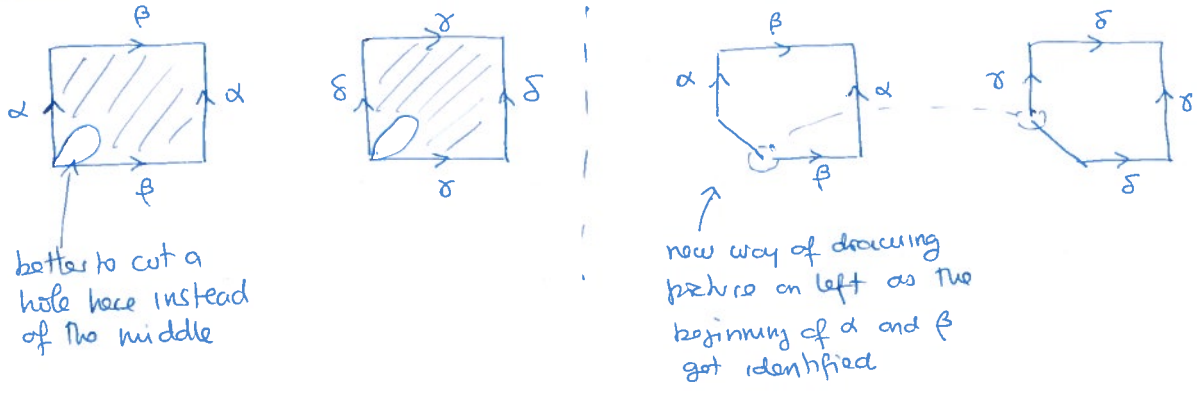 β
α
α
β
γ
δ
δ
γ
β
α
α
β
δ
γ
γ
δ
better to cut a
hole here instead
of the middle
new way of drawing
picture on left as the
beginning of α and β
got identified